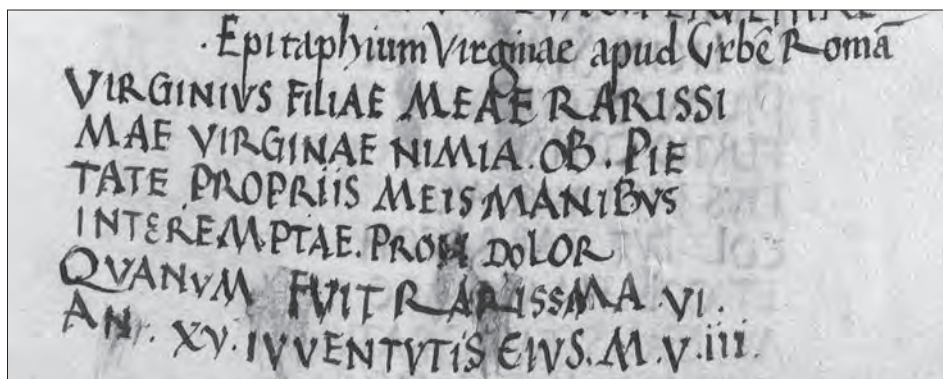 · Epitaphium Virginiae apud Urbē Romā
VIRGINIVS FILIAE MEAE RARISSI
MAE VIRGINAE NIMIA . OB . PIE
TATE PROPRIIS MEIS MANIBVS
INTEREMPTAE . PROH DOLOR
QVANVM FVIT RARISSMA VI .
AN . XV . IVVENTVTIS EIVS . M . V . iii .